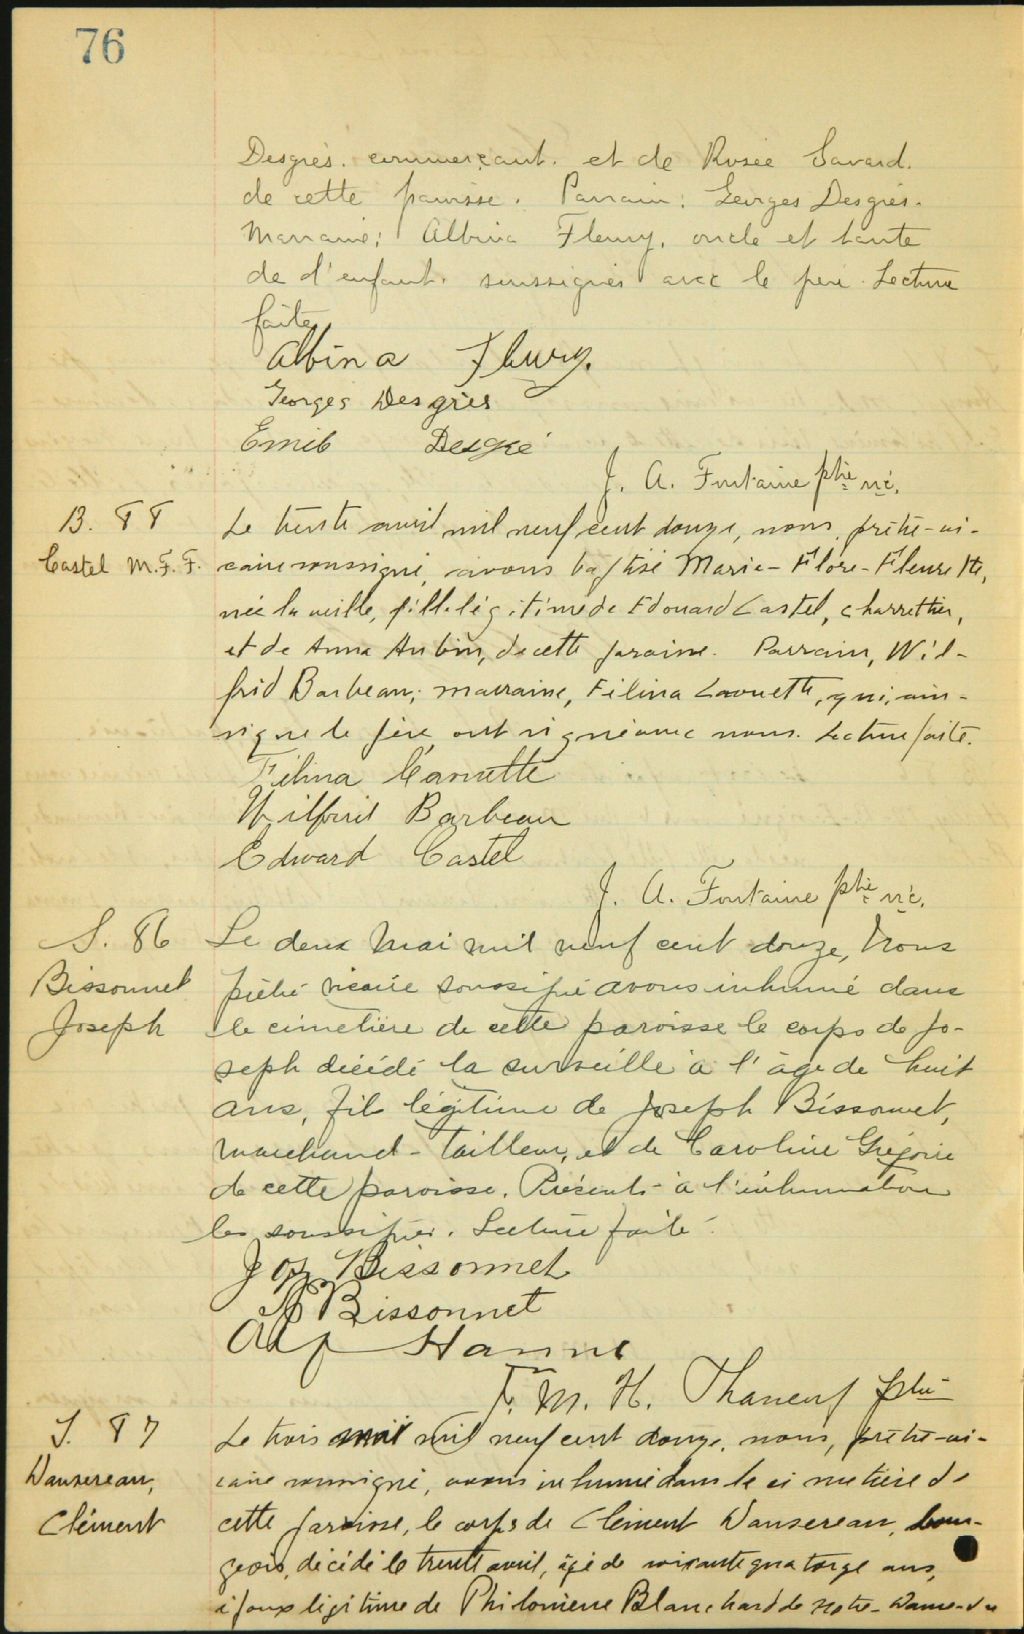 76
Desgrés. commerçant. et de Rosée Savard.
de cette paroisse. Parrain: Georges Desgrés.
Marraine; Albina Fleury, oncle et tante
de l'enfant. soussignés avec le père. Lecture
faite.
Albina Fleury.
Georges Desgrès
Emile Desgré
J. A. Fontaine ptre vic.
B. 88
Castel M. F. F.
Le trente avril mil neuf cent douze, nous, prêtre-vi-
caire soussigné, avons baptisé Marie-Flore-Fleurette,
née la veille, fille légitime de Edouard Castel, charretier,
et de Anna Aubin, de cette paroisse. Parrain, Wil-
frid Barbeau; marraine, Filina Caouette, qui, ain-
si que le père, ont signé avec nous. Lecture faite.
Filina Caouette
Wilfrid Barbeau
Edward Castel
J. A. Fontaine ptre vic.
S. 86
Bissonnet
Joseph
Le deux Mai mil neuf cent douze, Nous
prêtre vicaire soussigné avons inhumé dans
le cimetière de cette paroisse le corps de Jo-
seph décédé la surveille à l'âge de huit
ans, fils légitime de Joseph Bissonnet,
marchand-tailleur, et de Caroline Grégoire
de cette paroisse. Présents à l'inhumation
les soussignés. Lecture faite.
Jos Bissonnet
Bissonnet
Alf Hanne
F. M. H. Thaneuf ptre
S. 87
Dansereau,
Clément
Le trois mai mil neuf cent douze, nous, prêtre-vi-
caire soussigné, avons inhumé dans le cimetière de
cette paroisse, le corps de Clément Dansereau, bour-
geois, décédé le trente avril, âgé de soixante quatorze ans,
époux légitime de Philomène Blanchard de Notre-Dame-du